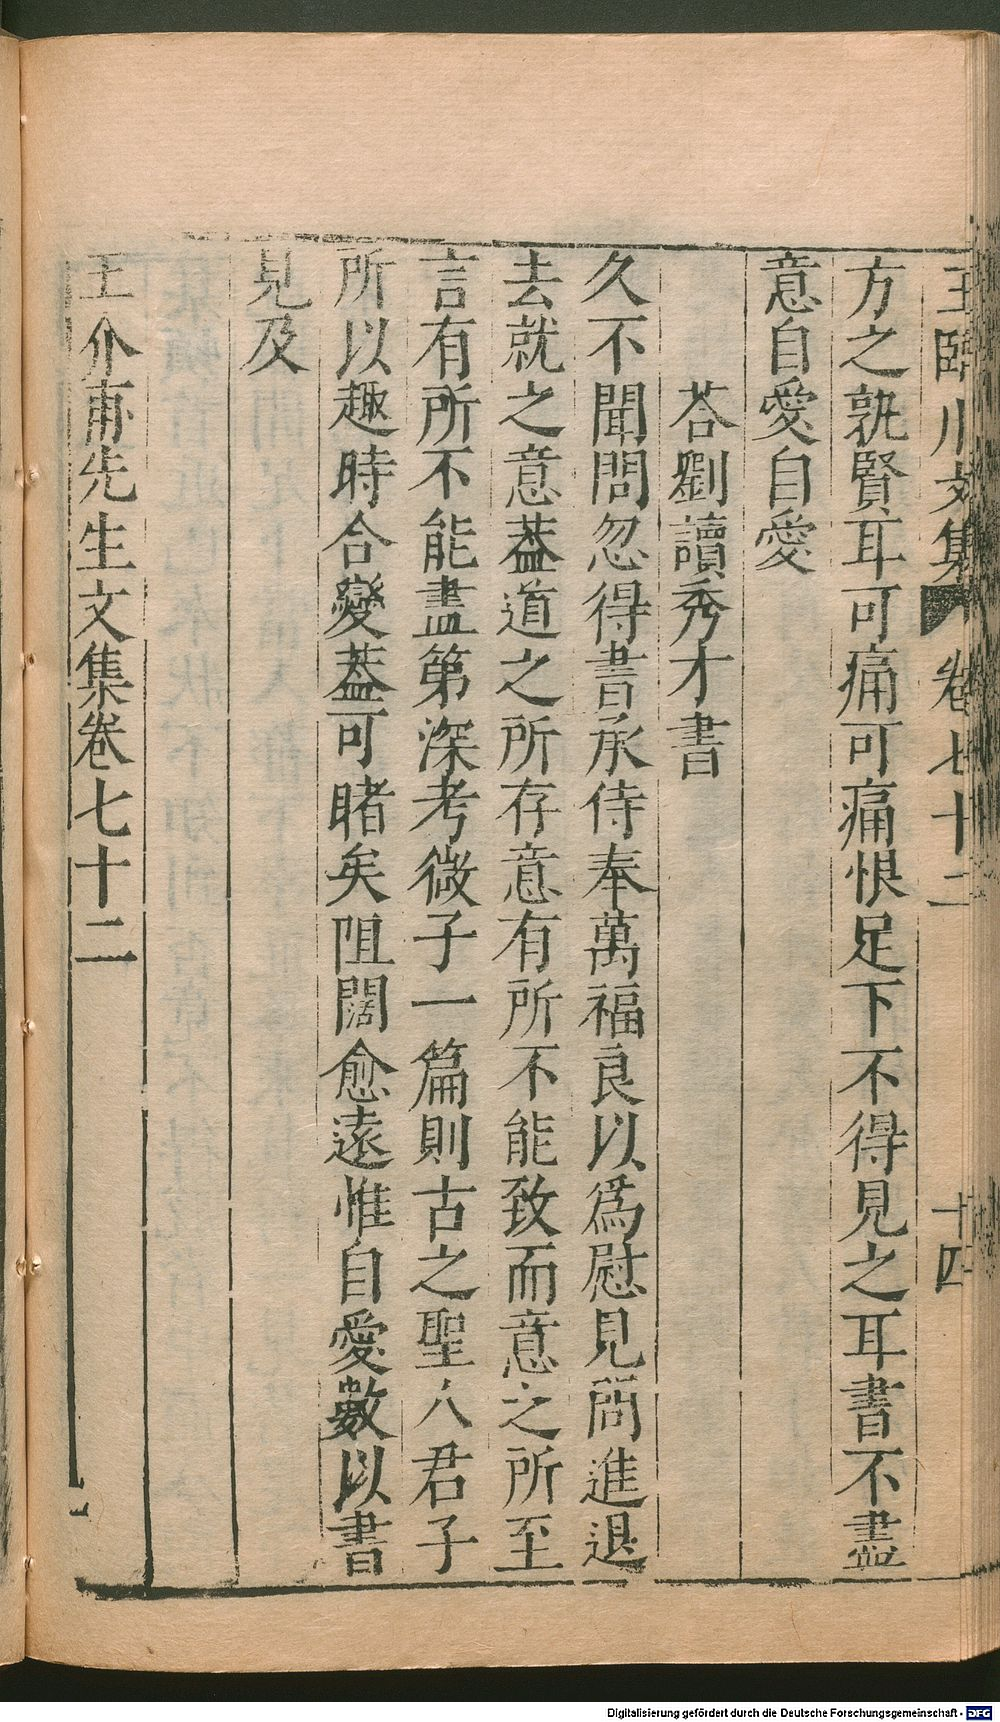 王臨川文集 卷七十二 十四
方之孰賢耳可痛可痛恨足下不得見之耳書不盡
意自愛自愛
荅劉讀秀才書
久不聞問忽得書承侍奉萬福良以爲慰見問進退
去就之意葢道之所存意有所不能致而意之所至
言有所不能盡第深考微子一篇則古之聖人君子
所以趣時合變葢可睹矣阻闊愈遠惟自愛數以書
見及
王介甫先生文集卷七十二
Digitalisierung gefördert durch die Deutsche Forschungsgemeinschaft - DFG